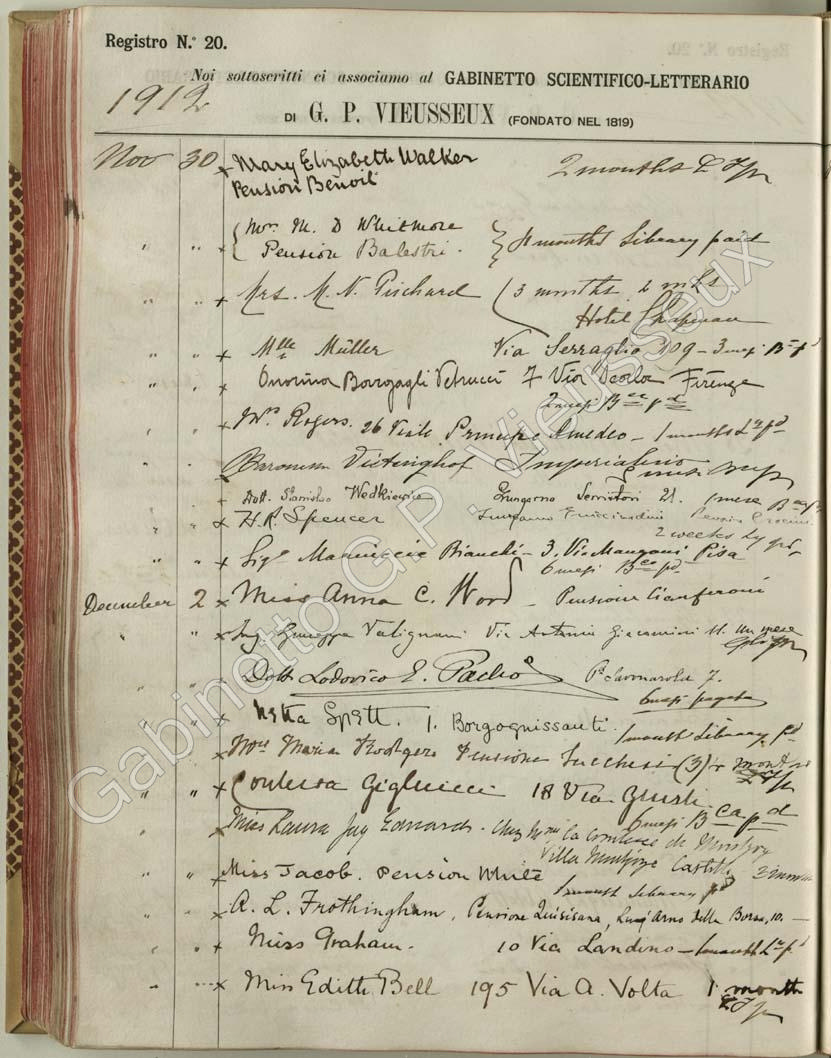 Registro N.° 20.
Noi sottoscritti ci associamo al GABINETTO SCIENTIFICO-LETTERARIO
1912
DI G. P. VIEUSSEUX (FONDATO NEL 1819)
Nov 30 x Mary Elizabeth Walker 2 months
Pension Benoit
" " { Mrs. M. D Whitmore } months Library paid
Pension Balestri.
" " x Mrs. M. N. Prichard ( 3 months
Hotel Chapman
" " x Mlle Müller Via Serraglio 109 - 3 mesi
" " x Bargagli Petrucci 7 Via Firenze
2 mesi
" x Mrs Rogers. 26 Viale Principe Amedeo - 1 month
x Baronessa Vietinghof Imperialino
x Dott. Stanislao Wedkiewicz Lungarno Serristori 21. 1 mese
" " x H. R. Spencer Lungarno Guicciardini Pension
2 weeks
" " x Sigr Bianchi - 3. Via Manzoni Pisa
6 mesi
December 2 x Miss Anna C. Word - Pensione Cianferoni
" " x Ing. Giuseppe Via Antonio Giacomini 11. un mese
" " x Dott. Lodovico E. Pacho Pa Savonarola 7.
6 mesi pagato
" " x Netta Spett. 1. Borgognissanti.
1 month Library pd
x Maria Rodgers Pensione Lucchesi (3)
" " x Contessa Gigliucci 18 Via Giusti
6 mesi
" x Miss Laura Jay Edwards. Chez Mme la Comtesse de
Villa Castello
" " x Miss Jacob. Pension White
1 month library pd
" " x A. L. Frothingham, Pensione Quisisana, Lung'Arno della Borsa, 10. —
" " x Miss Graham. 10 Via Landino - 1 month
" " x Miss Edith Bell 195 Via A. Volta 1 month
Gabinetto G.P. Vieusseux